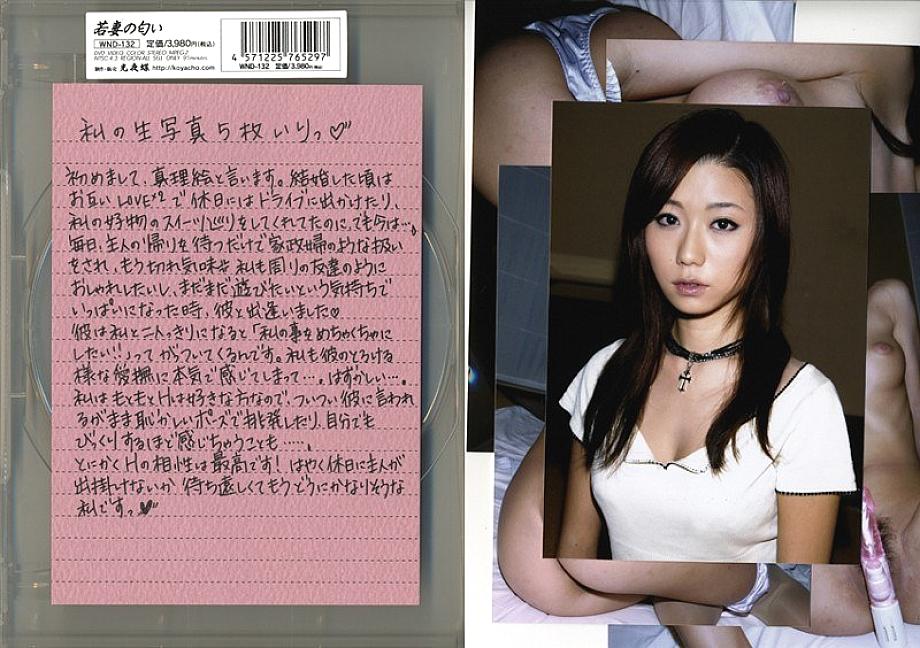 若妻の匂い
WND-132 定価/3,980円(税込)
DVD VIDEO COLOR STEREO MPEG-2
NTSC 4:3 REGION ALL SELL ONLY 91minutes
http://koyacho.com
4 571225 765297
WND-132 定価/3,980円(税込)
私の生写真5枚いりっ♡
初めまして、真理絵と言います。結婚した頃は
お互いLOVE×2で休日にはドライブに出かけたり、
私の好物のスイーツ巡りをしてくれてたのに、でも今は…。
毎日、主人の帰りを待つだけで家政婦のような扱い
をされ、もう切れ気味 私も周りの友達のように
おしゃれしたいし、まだまだ遊びたいという気持ちで
いっぱいになった時、彼と出逢いました♡
彼は私と二人っきりになると「私の事をめちゃくちゃに
したい!!」って がっついてくるんです。私も彼のとろける
様な愛撫に本気で感じてしまって…。はずかしい…。
私はもともとHは好きな方なので、ついつい彼に言われ
るがまま恥かしいポーズで挑発したり、自分でも
びっくりするほど感じちゃうことも……。
とにかくHの相性は最高です! はやく休日に主人が
出掛けないか 待ち遠しくてもうどうにかなりそうな
私ですっ♥